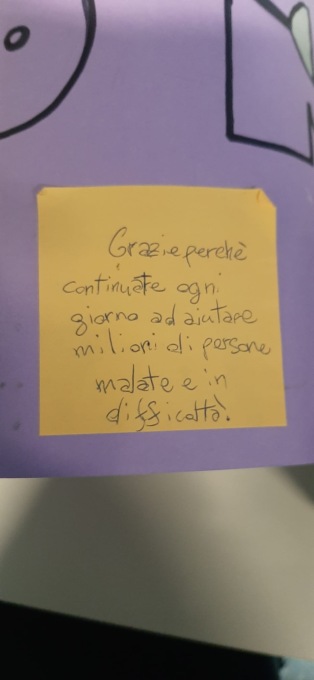 Grazie perchè
continuate ogni
giorno ad aiutare
milioni di persone
malate e in
difficoltà.